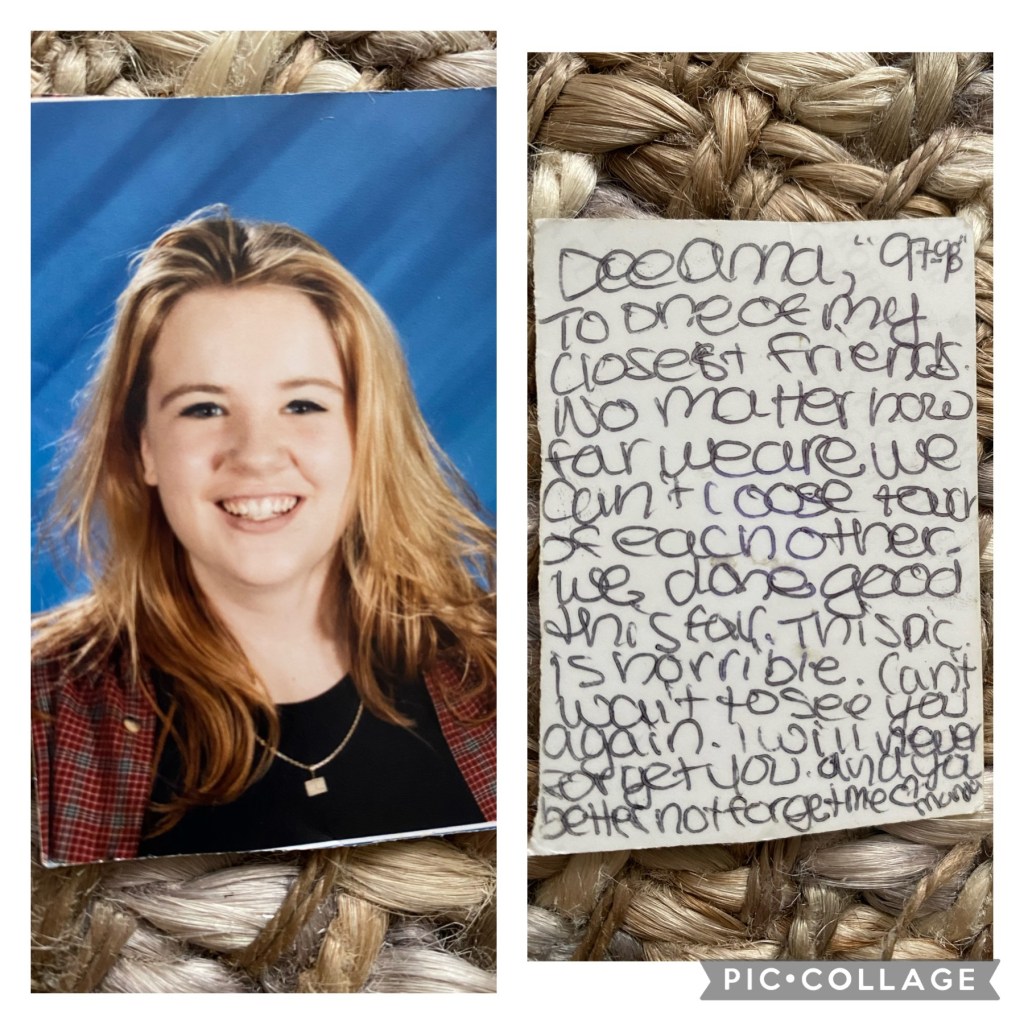 DeeAnna, "97-98"
To one of my
closest friends.
No matter how
far we are, we
can't loose touch
of each other.
we done good
this fall. This pic.
is horrible. Can't
wait to see you
again. I will never
forget you. and you
better not forget me
PIC•COLLAGE